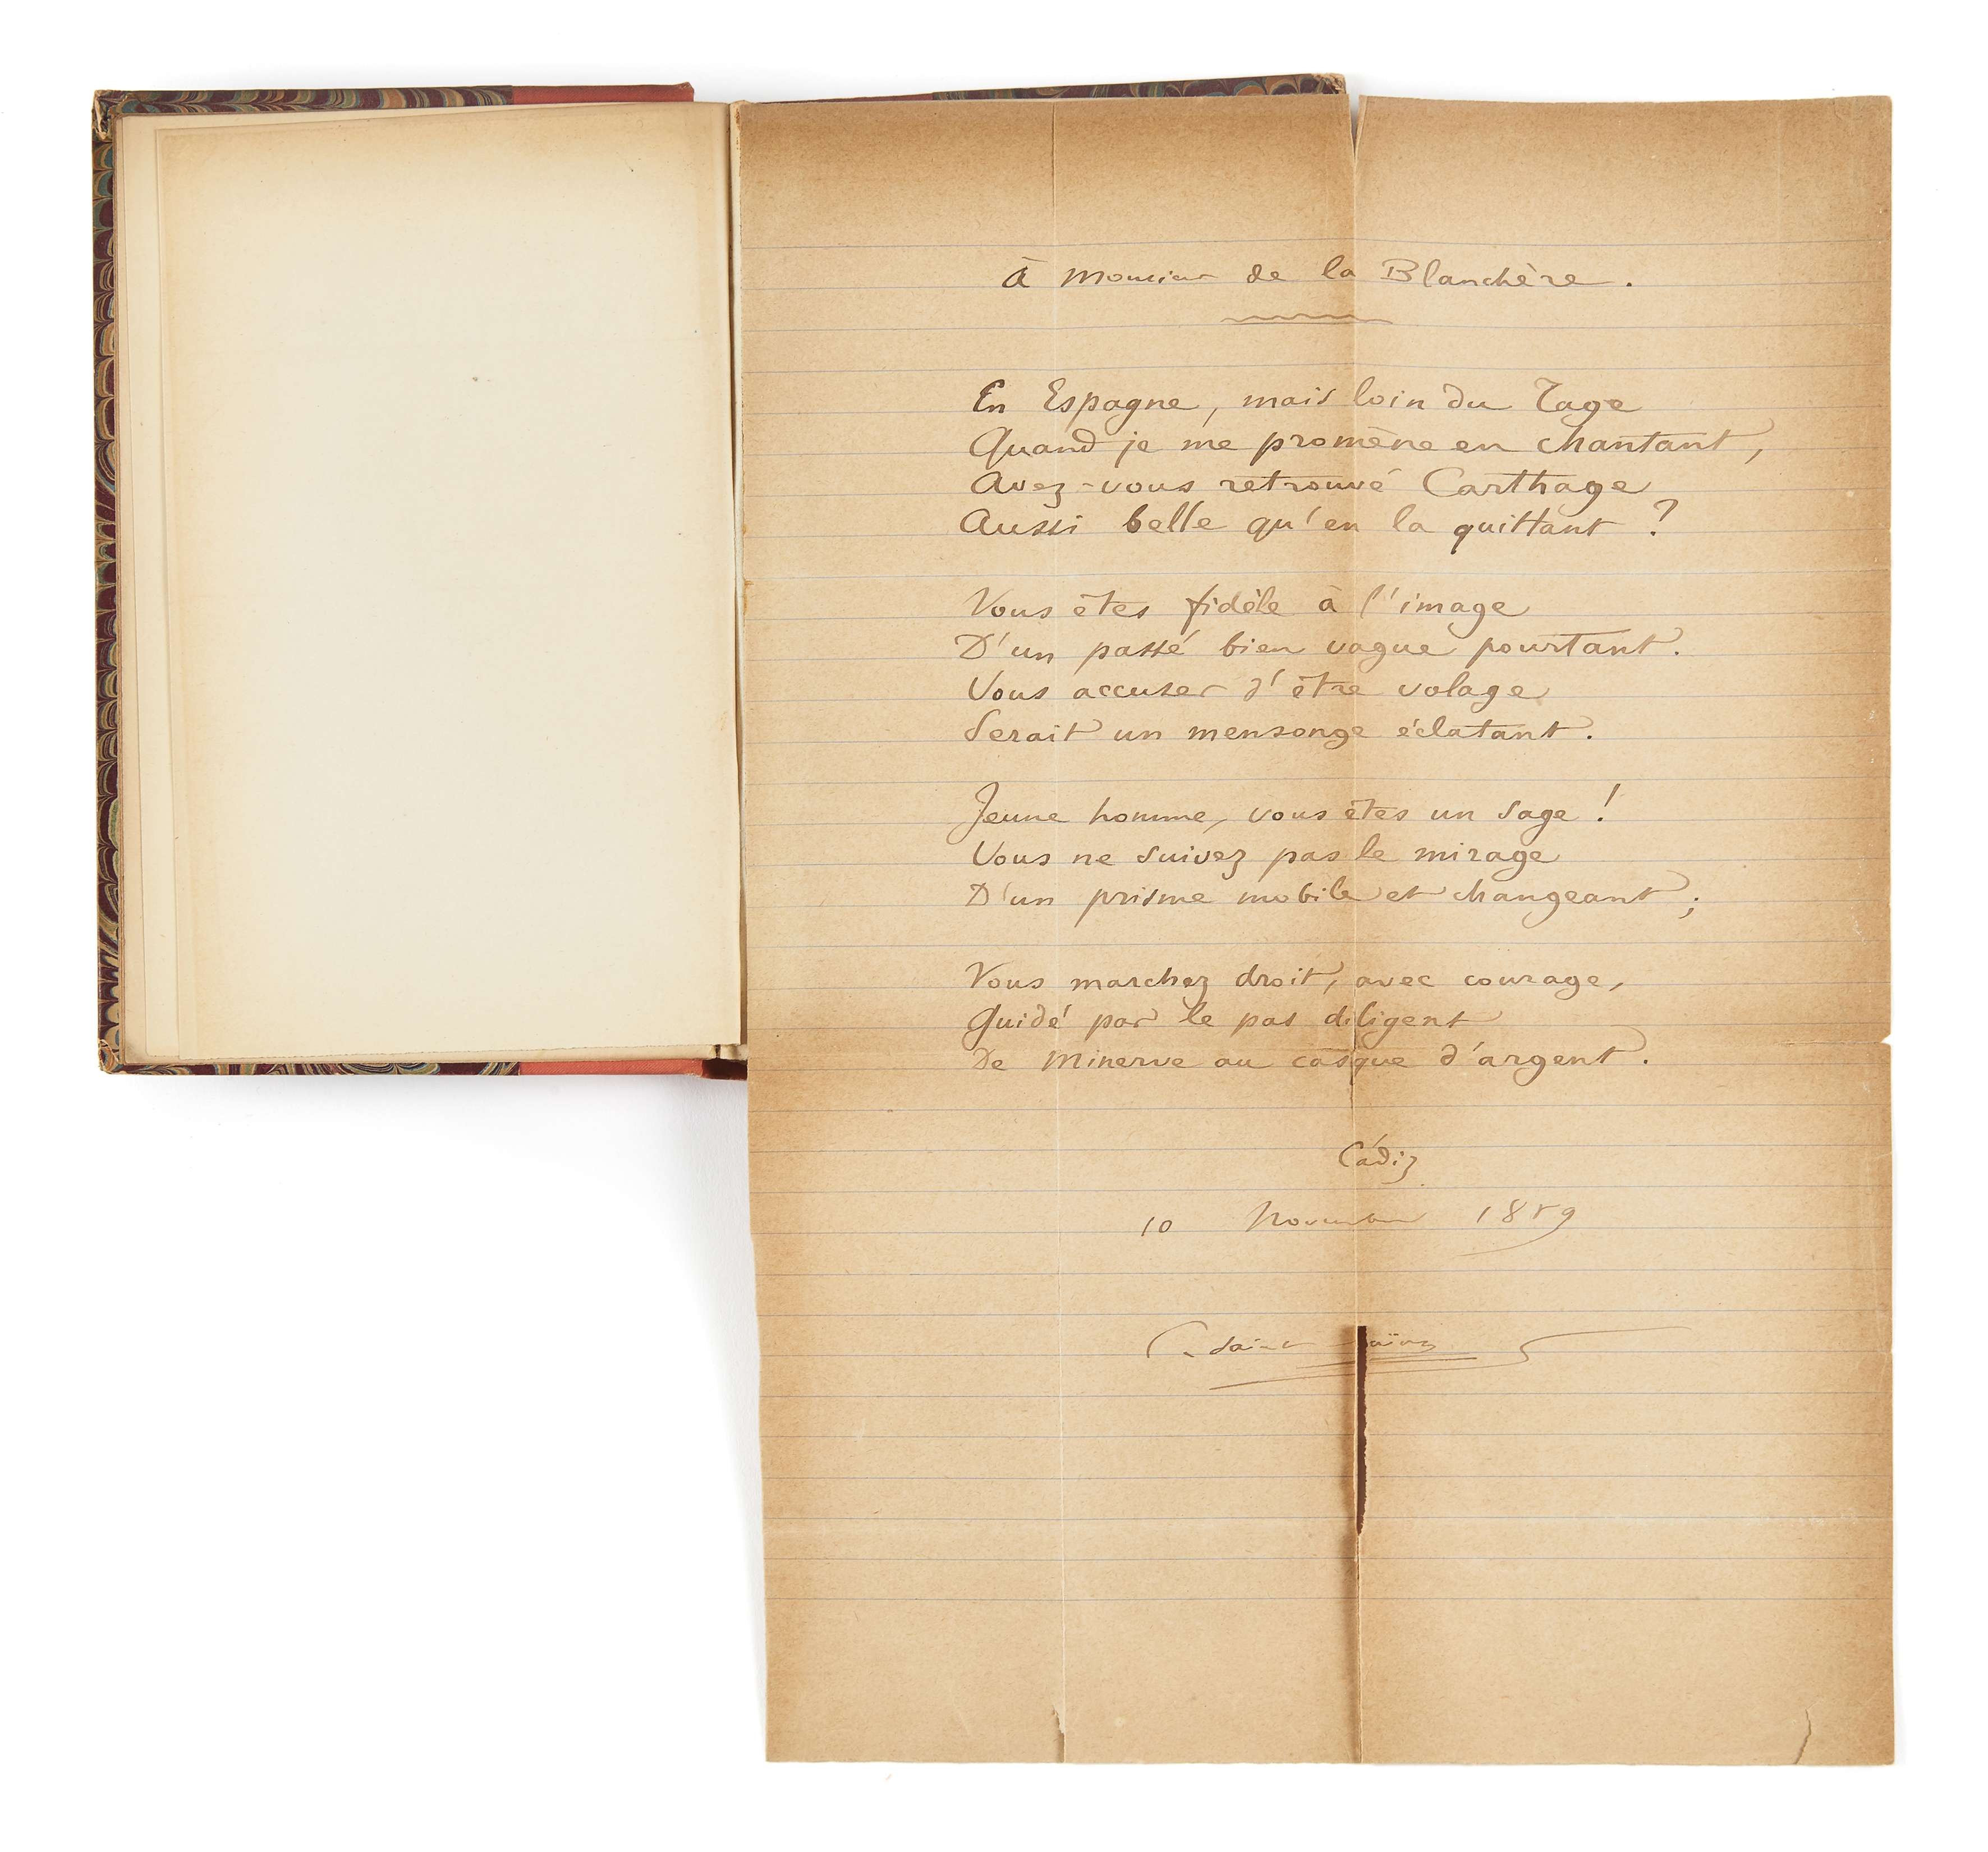 À Monsieur de la Blanchère.
En Espagne, mais loin du Tage
Quand je me promène en chantant,
Avez-vous retrouvé Carthage
Aussi belle qu'en la quittant ?
Vous êtes fidèle à l'image
D'un passé bien vague pourtant.
Vous accuser d'être volage
Serait un mensonge éclatant.
Jeune homme, vous êtes un sage !
Vous ne suivez pas le mirage
D'un prisme mobile et changeant ;
Vous marchez droit, avec courage,
Guidé par le pas diligent
De Minerve au casque d'argent.
Cádiz
10 Novembre 1889
C. Saint-Saëns